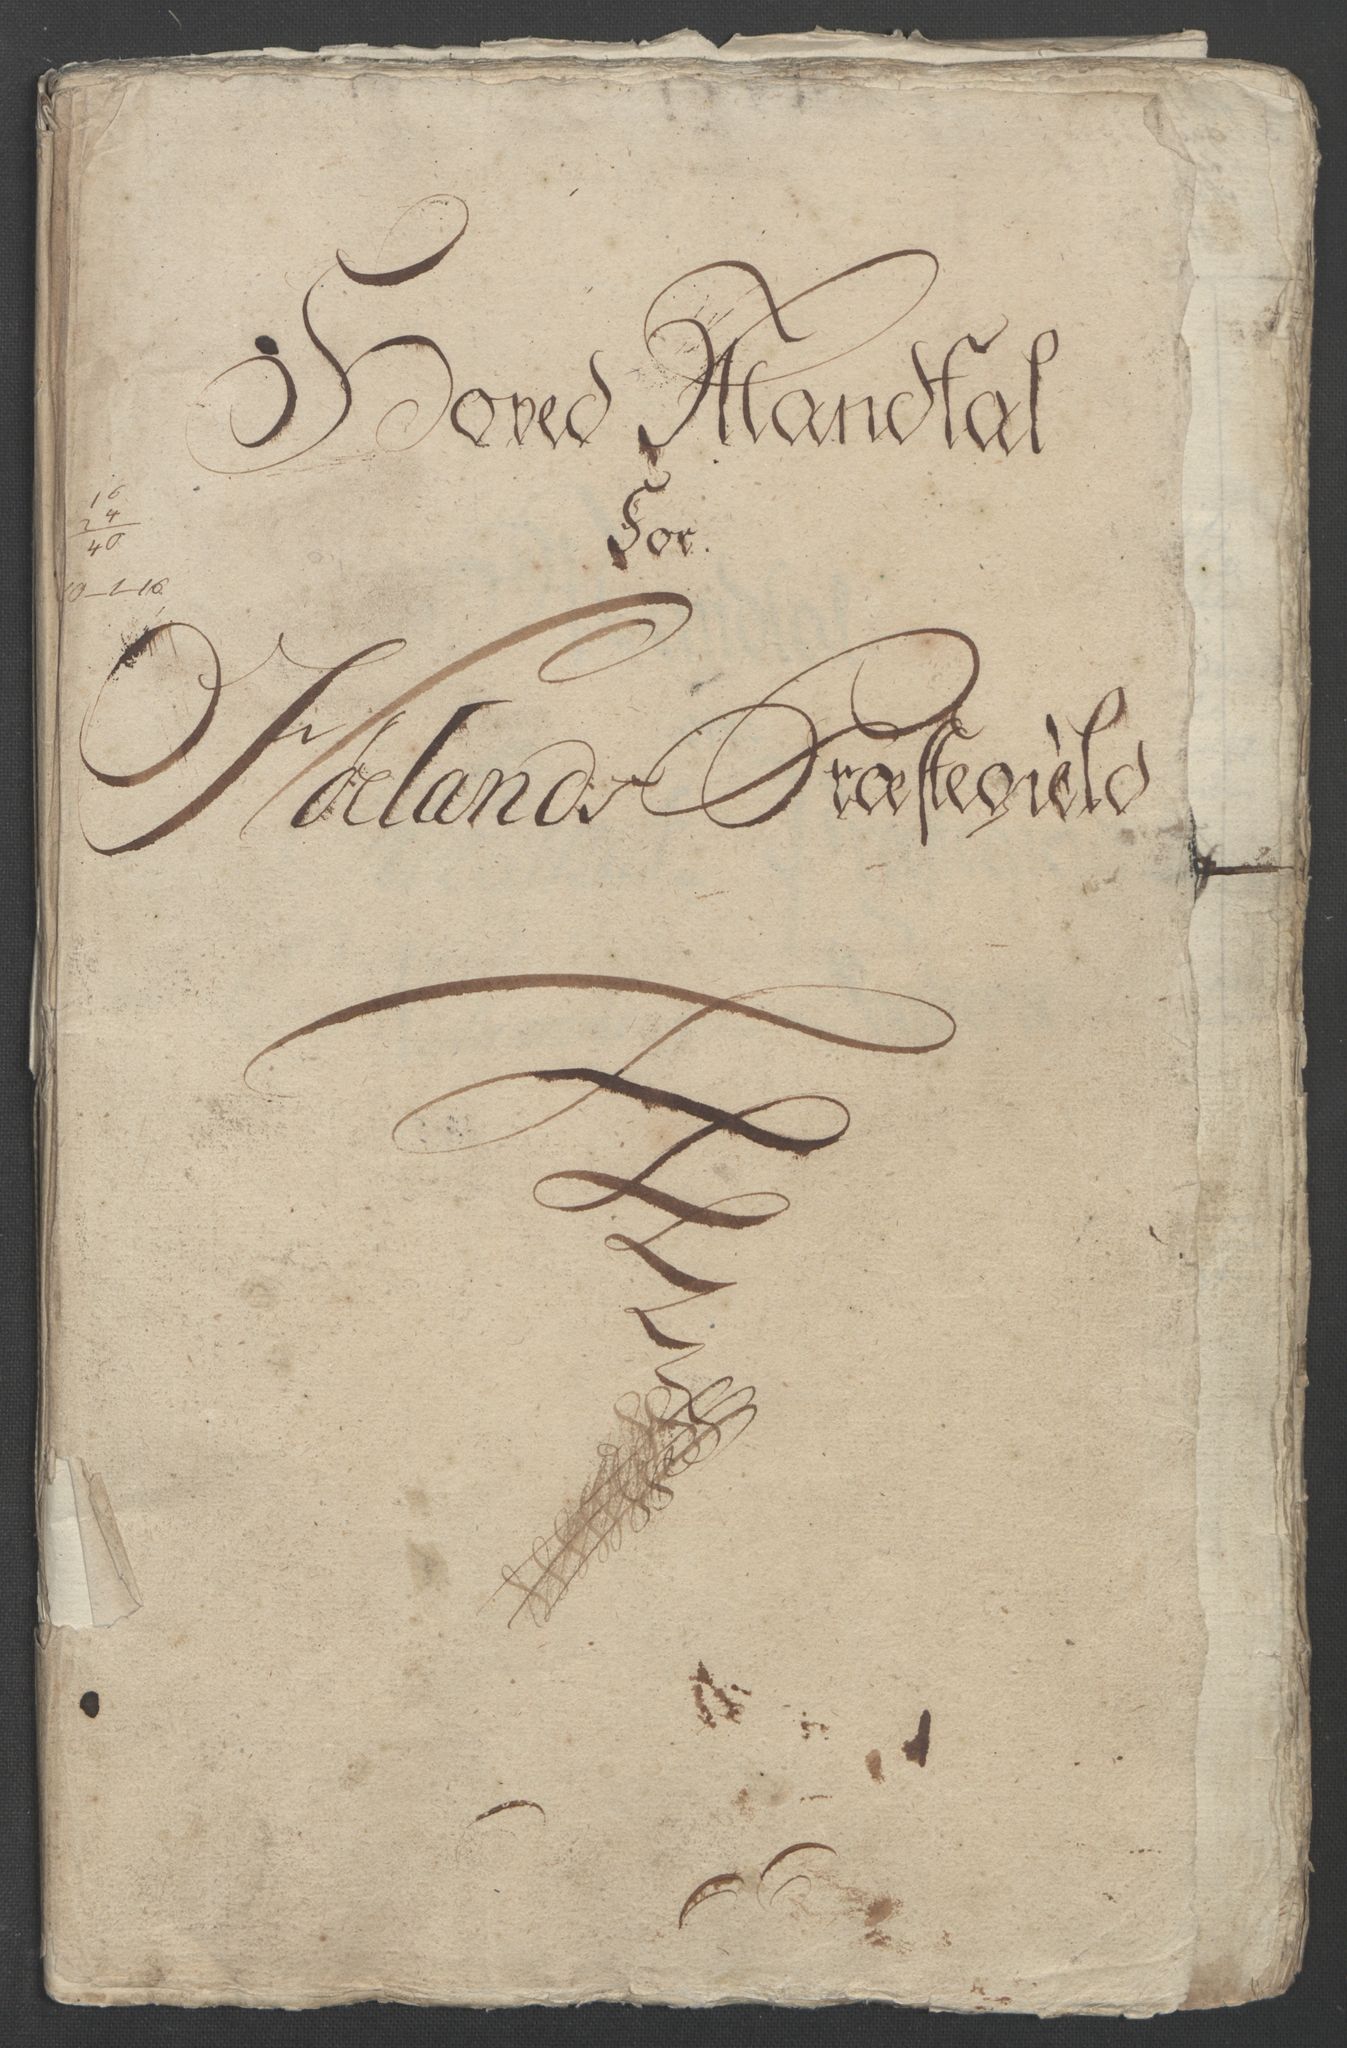 Hoved Mandtal
For.
Hølands Præstegield
16
24
40
10-1-16